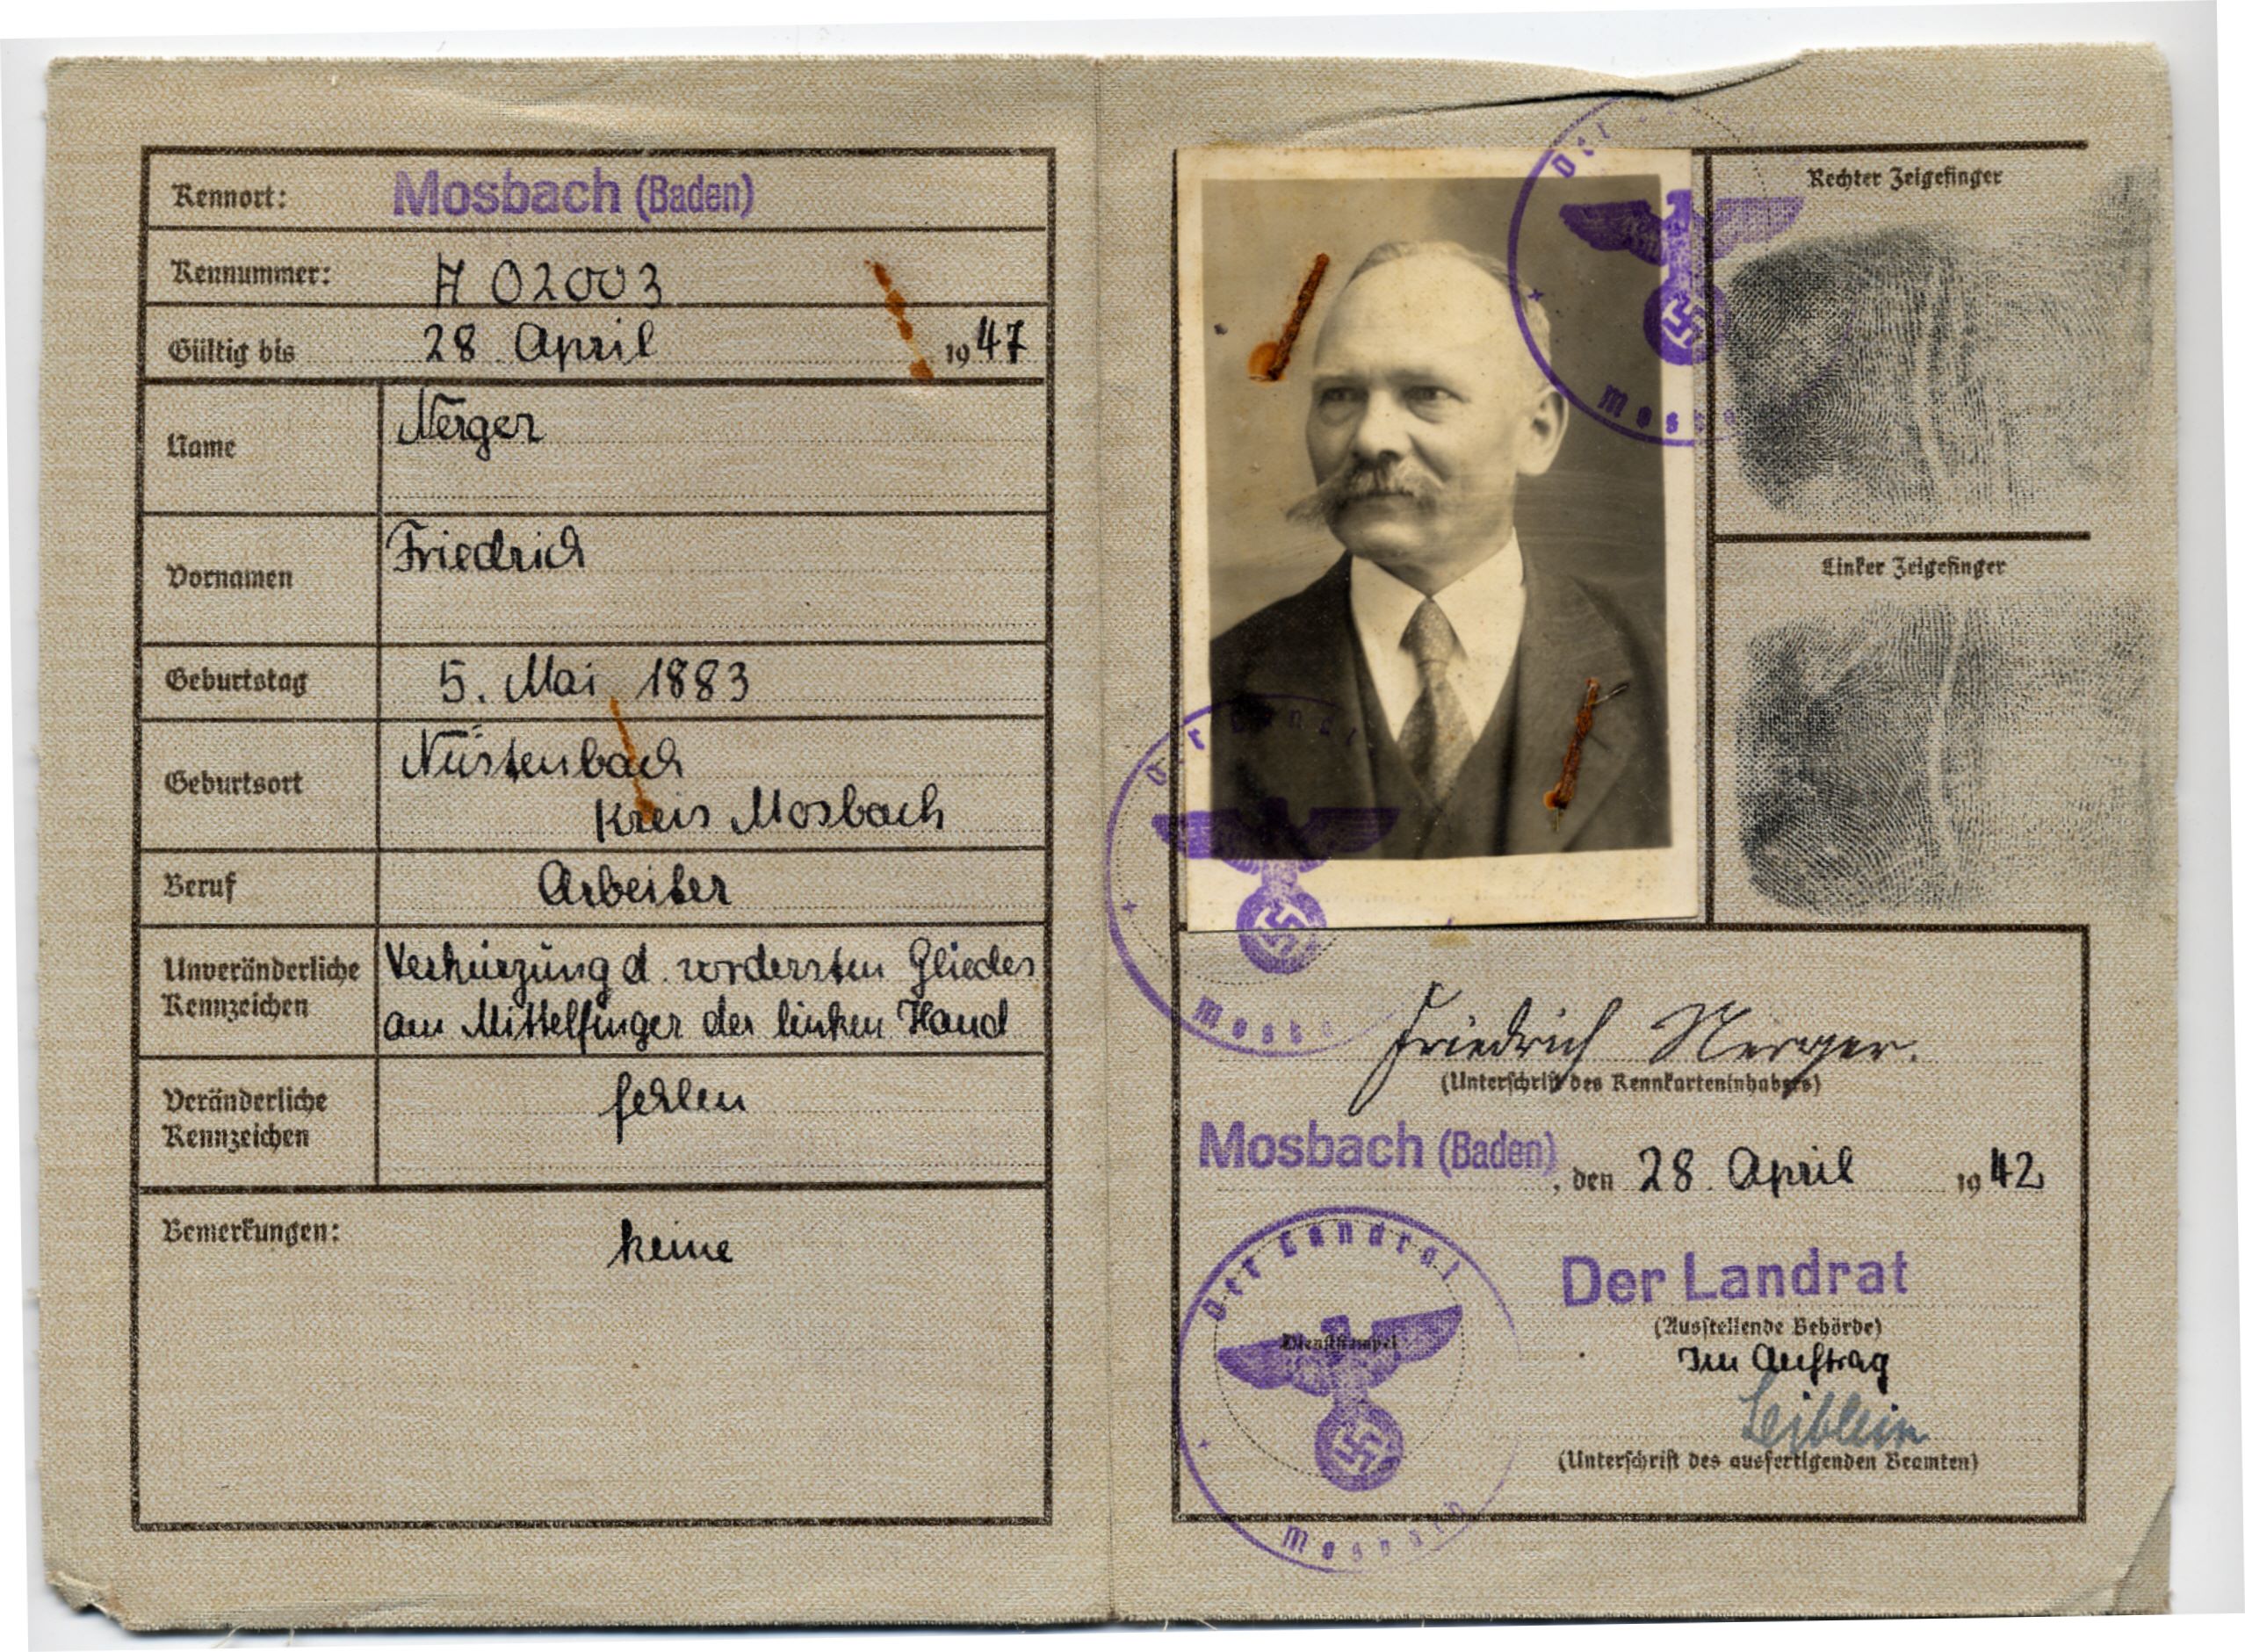 Kennort: Mosbach (Baden)
Kennummer: A 02003
Gültig bis 28. April 1947
Name Nerger
Vornamen Friedrich
Geburtstag 5. Mai 1883
Geburtsort Nüstenbach
Kreis Mosbach
Beruf Arbeiter
Unveränderliche Kennzeichen Verkürzung d. vordersten Gliedes
am Mittelfinger der linken Hand
Veränderliche Kennzeichen fehlen
Bemerkungen: keine
Rechter Zeigefinger
Linker Zeigefinger
Der
Mosba
Der Landrat
Mosba
Friedrich Nerger.
(Unterschrift des Kennkarteninhabers)
Mosbach (Baden), den 28. April 1942
Der Landrat
Dienststempel
Mosbach
Der Landrat
(Ausstellende Behörde)
Im Auftrag
Leiblein
(Unterschrift des ausfertigenden Beamten)